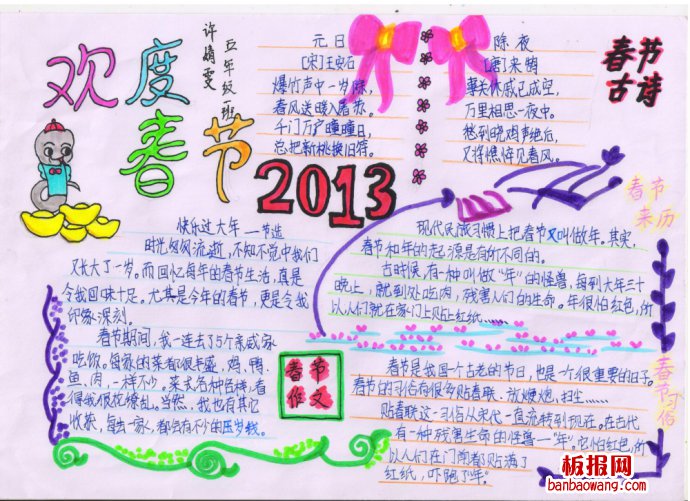 欢度
春节
许娟雯
五年级一班
元日
[宋]王安石
爆竹声中一岁除,
春风送暖入屠苏。
千门万户曈曈日,
总把新桃换旧符。
除夜
[唐]来鹄
事关休戚已成空,
万里相思一夜中。
愁到晓鸡声绝后,
又将憔悴见春风。
春节
古诗
2013
快乐过大年 —节选
时光匆匆流逝,不知不觉中我们
又长大了一岁。而回忆每年的春节生活,真是
令我回味十足。尤其是今年的春节,更是令我
印象深刻。
春节期间,我一连去了5个亲戚家
吃饭。每家的菜都很丰盛,鸡、鸭、
鱼、肉,一样不少。菜式各种色样,看
得我眼花缭乱。当然,我也有其它
收获,每去一家,都会有不少的压岁钱。
春节
作文
春节
来历
现代民俗习惯上把春节又叫做年。其实,
春节和年的起源是有所不同的。
古时侯,有一种叫做“年”的怪兽,每到大年三十
晚上,就到处吃肉,残害人们的生命。年很怕红色,所
以人们就在家门上贴上红纸……
春节
习俗
春节是我国一个古老的节日,也是一个很重要的日子。
春节的习俗有很多贴春联、放爆炮、扫尘……
贴春联这一习俗从宋代一直流转到现在。在古代
有一种残害生命的怪兽—“年”,它怕红色,所
以人们在门前都贴满了
红纸,吓跑了“年”。
板报网
banbaowang.com